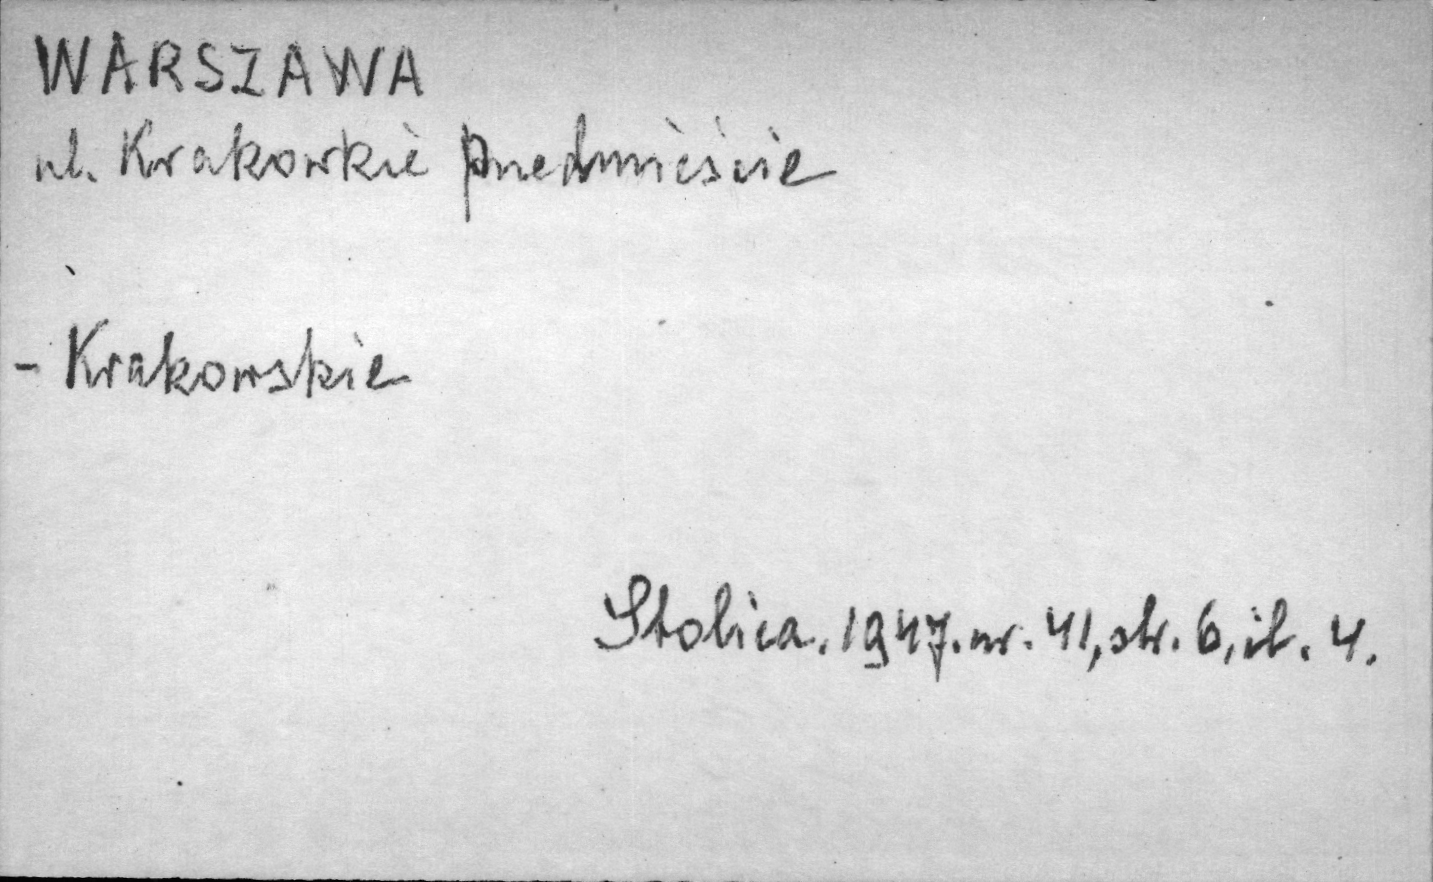 WARSZAWA
ul. Krakowkie przedmieście
- Krakowskie
Stolica. 1947. nr. 41, str. 6, il. 4.